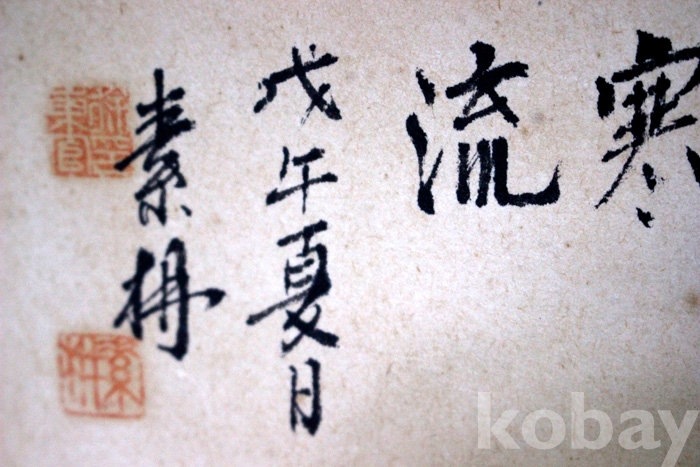 寒
流
戊午夏日
素冊
kobay